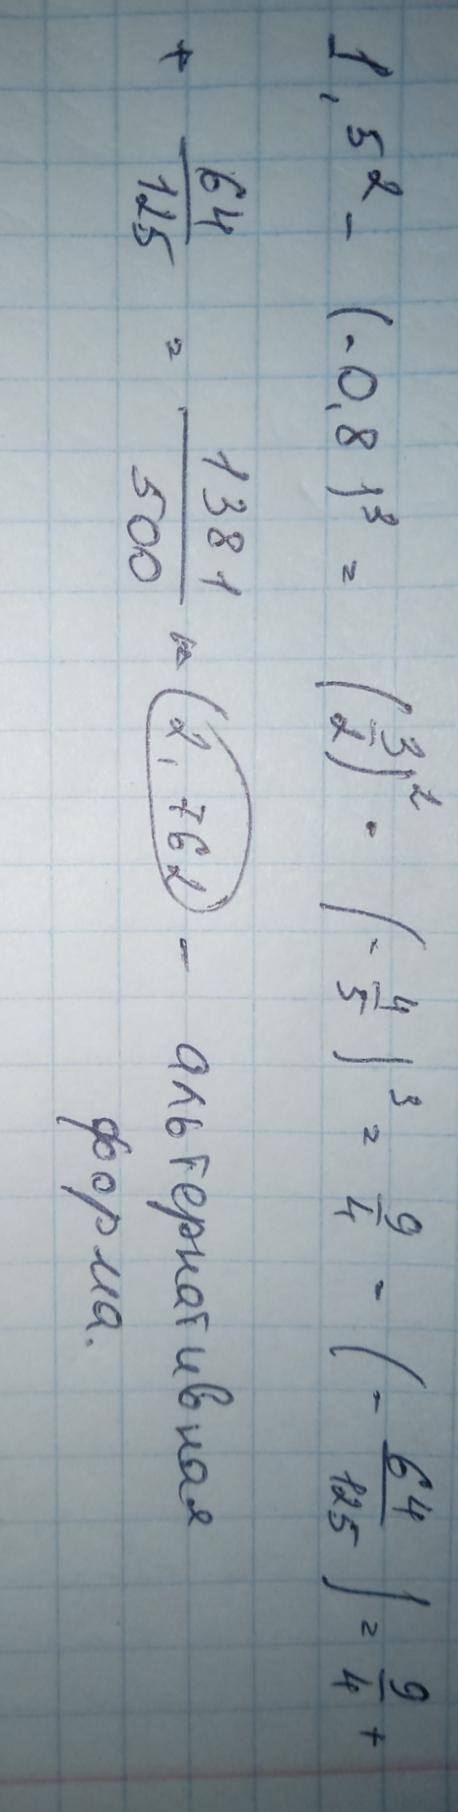 1,5² - (-0,8)³ = (3/2)² - (-4/5)³ = 9/4 - (-64/125) = 9/4 +
+ 64/125 = 1381/500 ≈ (2,762) - альтернативная
форма.